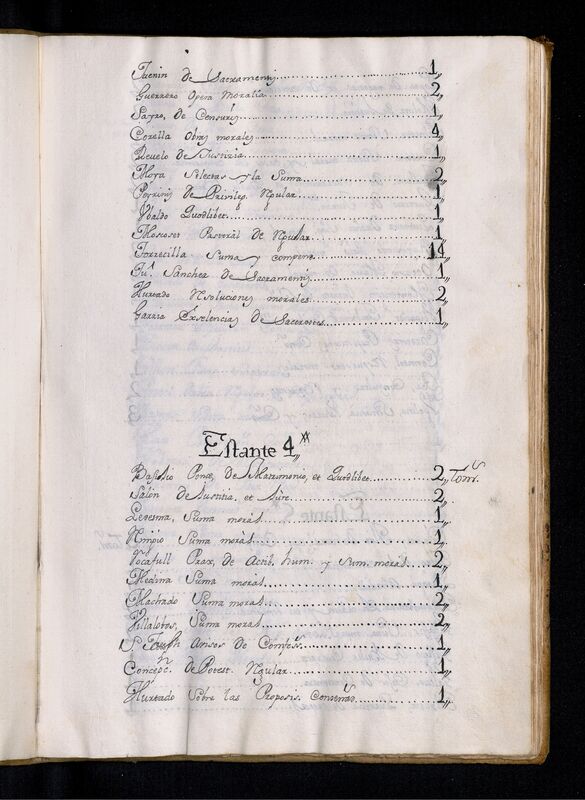 Juenin de Sacramentis 1,,
Guerrero Opera Moralia 2,,
Sayro, de Censuris 1,,
Corella Obras morales 4,,
de Justizia 1,,
Mora Selectas y la Suma 2,,
de Privileg. Rgular 1,,
Vbaldo Quodlibet 1,,
Moscoso Pastoral de Rgular 1,,
Torrecilla Suma y compend 14,,
Ju.º Sanchez de Sacramentis 1,,
Hurtado Rsoluciones morales 2,,
Garzia Exselencias de Sacerotes 1,,
Estante 4,,
Bassilio Ponce, de Matrimonio, et Quodlibet 2,, Tom.s
Salon de Justitia, et Jure 2,,
Ledesma, Suma moral 1,,
Suma moral 1,,
Prax, de Actib. hum. y Sum. moral 2,,
Medina Suma moral 1,,
Machado Suma moral 2,,
Villalobos, Suma moral 2,,
Avisos de Comfess. 1,,
Concepc.n de Potest. Rgular 1,,
Hurtado Sobre las Proposis. Condenas 1,,